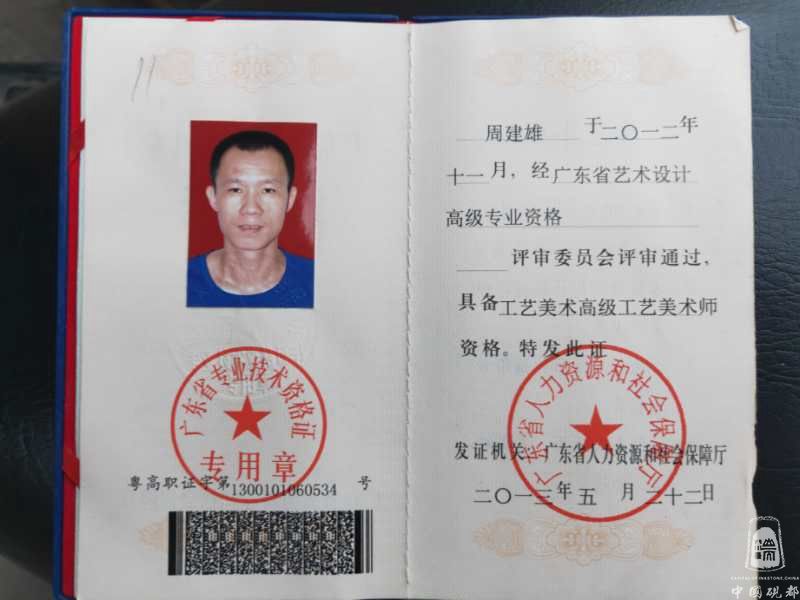 11
广东省专业技术资格证
专用章
粤高职证字第1300101060534号
周建雄 于二〇一二年
十一月，经广东省艺术设计
高级专业资格
评审委员会评审通过，
具备工艺美术高级工艺美术师
资格。特发此证
广东省人力资源和社会保障厅
发证机关：广东省人力资源和社会保障厅
二〇一三年五月二十二日
CAPITAL OF INKSTONE,CHINA
中國硯都